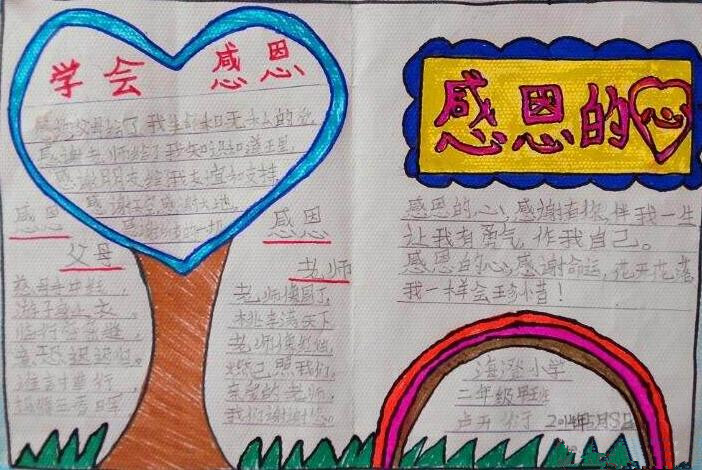 学会 感恩
感谢父母给了我生命和无私的爱
感谢老师给了我知识和
感谢朋友给了我友谊和支持
感谢 感谢大地
感谢 的一切
感恩
父母
慈母手中线，
游子身上衣，
临行密密缝，
意恐迟迟归。
谁言寸草心，
报得三春晖，
感恩
老师
老师像园丁
桃李满天下
老师像
照我们，
的老师，
我们谢谢您。
感恩的心
感恩的心，感谢有你，伴我一生
让我有勇气作我自己。
感恩的心，感谢命运，花开花落
我一样会珍惜！
海澄小学
二年级 班
2014年5月8日